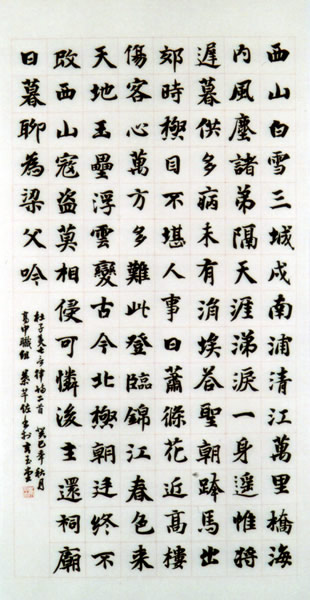 西山白雪三城戍南浦清江萬里橋海
內風塵諸弟隔天涯涕淚一身遙惟將
遲暮供多病未有涓埃荅聖朝跨馬出
郊時極目不堪人事日蕭條花近高樓
傷客心萬方多難此登臨錦江春色來
天地玉壘浮雲變古今北極朝廷終不
改西山寇盜莫相侵可憐後主還祠廟
日暮聊為梁父吟
杜子美七言律詩二首 癸巳年秋月
高中職組